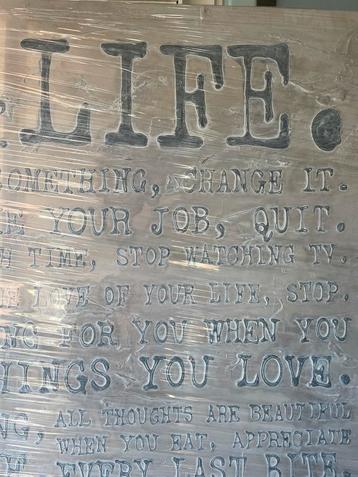 LIFE.
OMETHING, CHANGE IT.
YOUR JOB, QUIT.
H TIME, STOP WATCHING TV.
LOVE OF YOUR LIFE, STOP.
NG FOR YOU WHEN YOU
HINGS YOU LOVE.
NG, ALL THOUGHTS ARE BEAUTIFUL
WHEN YOU EAT, APPRECIATE
EVERY LAST BITE.